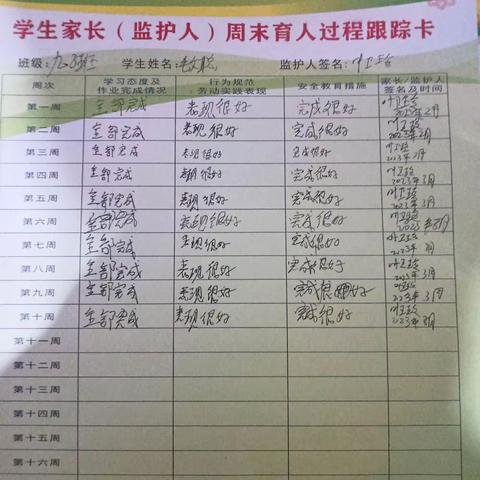 学生家长（监护人）周末育人过程跟踪卡
班级： 学生姓名： 监护人签名：
周次 学习态度及作业完成情况 行为规范、劳动实践表现 安全教育措施 家长/监护人签名及时间
第一周 全部完成 表现很好 完成很好 2023年2月
第二周 全部完成 表现很好 完成很好 2023年2月
第三周 全部完成 表现很好 完成很好 2023年2月
第四周 全部完成 表现很好 完成很好 2023年3月
第五周 全部完成 表现很好 完成很好 2023年3月
第六周 全部完成 表现很好 完成很好
第七周 全部完成 表现很好 完成很好
第八周 全部完成 表现很好 完成很好 2023年3月
第九周 全部完成 表现很好 完成很好 2023年3月
第十周 全部完成 表现很好 完成很好 2023年3月
第十一周
第十二周
第十三周
第十四周
第十五周
第十六周